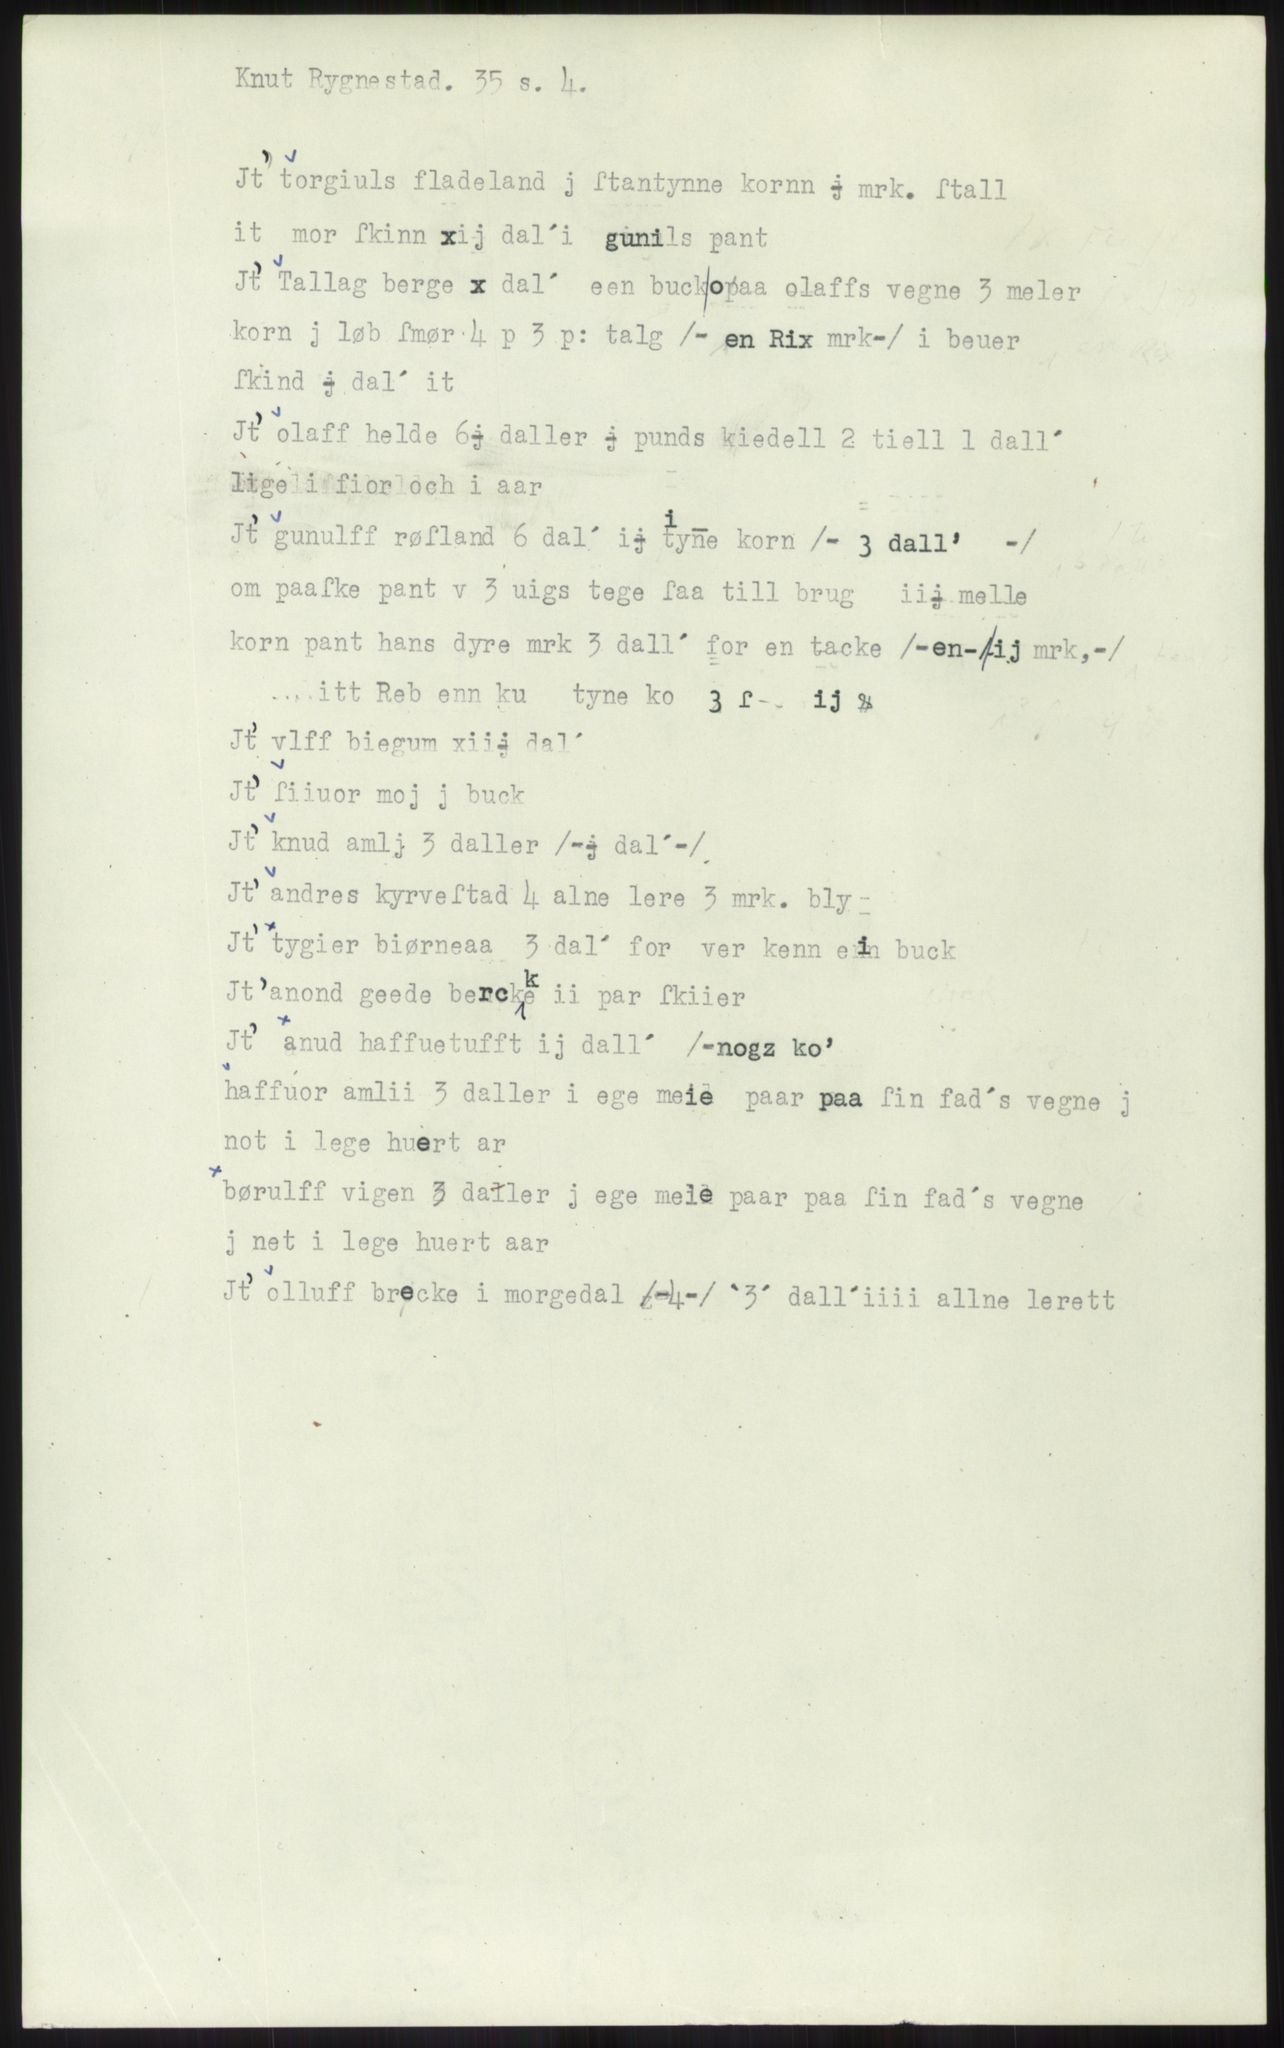 Knut Rygnestad. 35 s. 4.
Jt' torgiuls fladeland j ſtantynne kornn j mrk. ſtall
it mor ſkinn xij dal´i gunils pant
Jt' Tallag berge x dal´ een buck/opaa olaffs vegne 3 meler
korn j løb ſmør 4 p 3 p: talg /- en Rix mrk-/ i beuer
ſkind j dal´ it
Jt' olaff helde 6j daller j punds kiedell 2 tiell 1 dall´
lige i fior och i aar
Jt' gunulff røſland 6 dal´ ij tyne korn /- 3 dall' -/
om paaſke pant v 3 uigs tege ſaa till brug iij melle
korn pant hans dyre mrk 3 dall´ for en tacke /-en-/ij mrk,-/
....itt Reb enn ku tyne ko 3 ſ-. ij
Jt' vlff biegum xiij dal´
Jt' ſiiuor moj j buck
Jt' knud amlj 3 daller /-j dal´-/
Jt' andres kyrveſtad 4 alne lere 3 mrk. bly-
Jt' tygier biørneaa 3 dal´ for ver kenn ein buck
Jt' anond geede berckke ii par ſkiier
Jt' anud haffuetufft ij dall´ /-nogz ko'
haffuor amlii 3 daller i ege meie paar paa ſin fad´s vegne j
not i lege huert ar
børulff vigen 3 daller j ege meie paar paa ſin fad´s vegne
j net i lege huert aar
Jt' olluff brecke i morgedal /-4-/ `3´ dall´iiii allne lerett